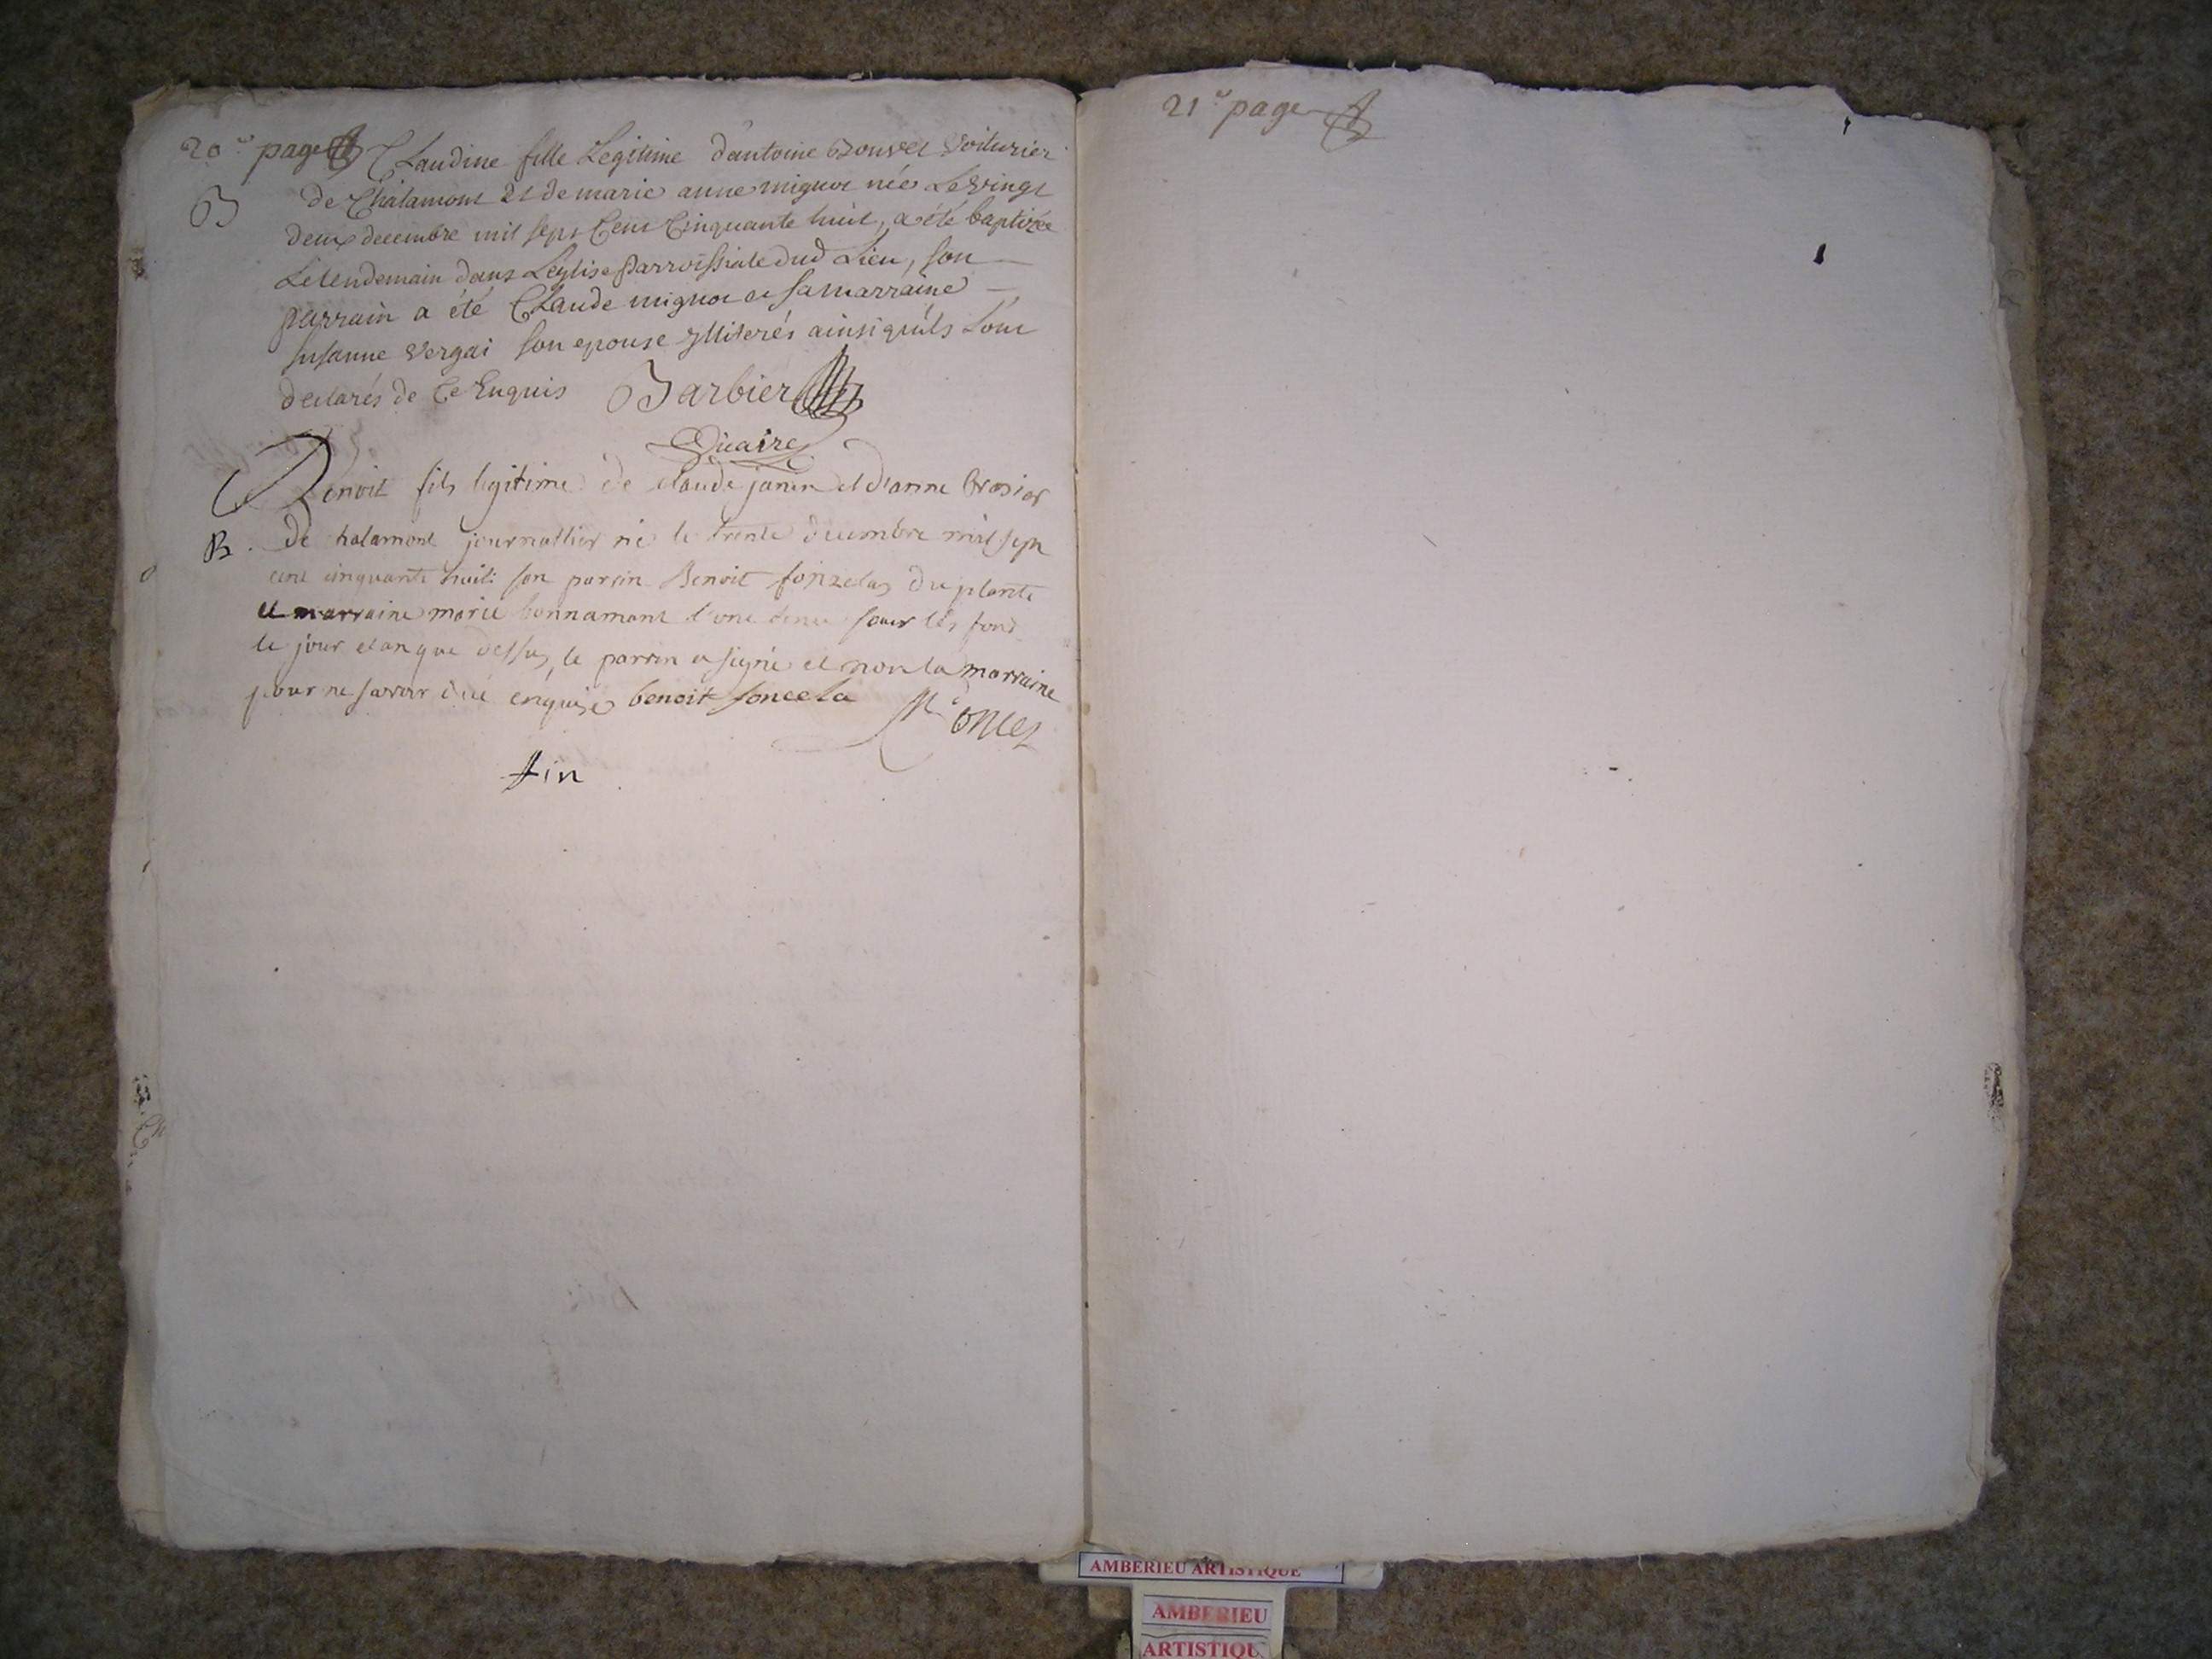 20e page Claudine fille Legitime d'antoine Bouvet voiturier
B
de Chalamont Et de marie anne mignot née Le vingt
deux decembre mil sept Cent Cinquante huit, a été baptizée
Le lendemain dans L'eglise parroissiale dud Lieu, son
parrain a été Claude mignot et sa marraine
susanne vergai son epouse ylliterés ainsi qu'ils L'ont
declarés de Ce Enquis Barbier
Vicaire
Benoit fils legitime de claude janin et d'anne brosier
B. de halamont journallier né le trente decembre mil sept
cent cinquante huit: son parrin Benoit fonzelas du plante
et marraine marie bonnamont l'one tenu sur les fond
le jour et an que dessus, le parrin a signé et non la marraine
pour ne savoir de ce enquise benoit foncela
fin
21e page
AMBERIEU ARTISTIQUE
AMBERIEU
ARTISTIQU